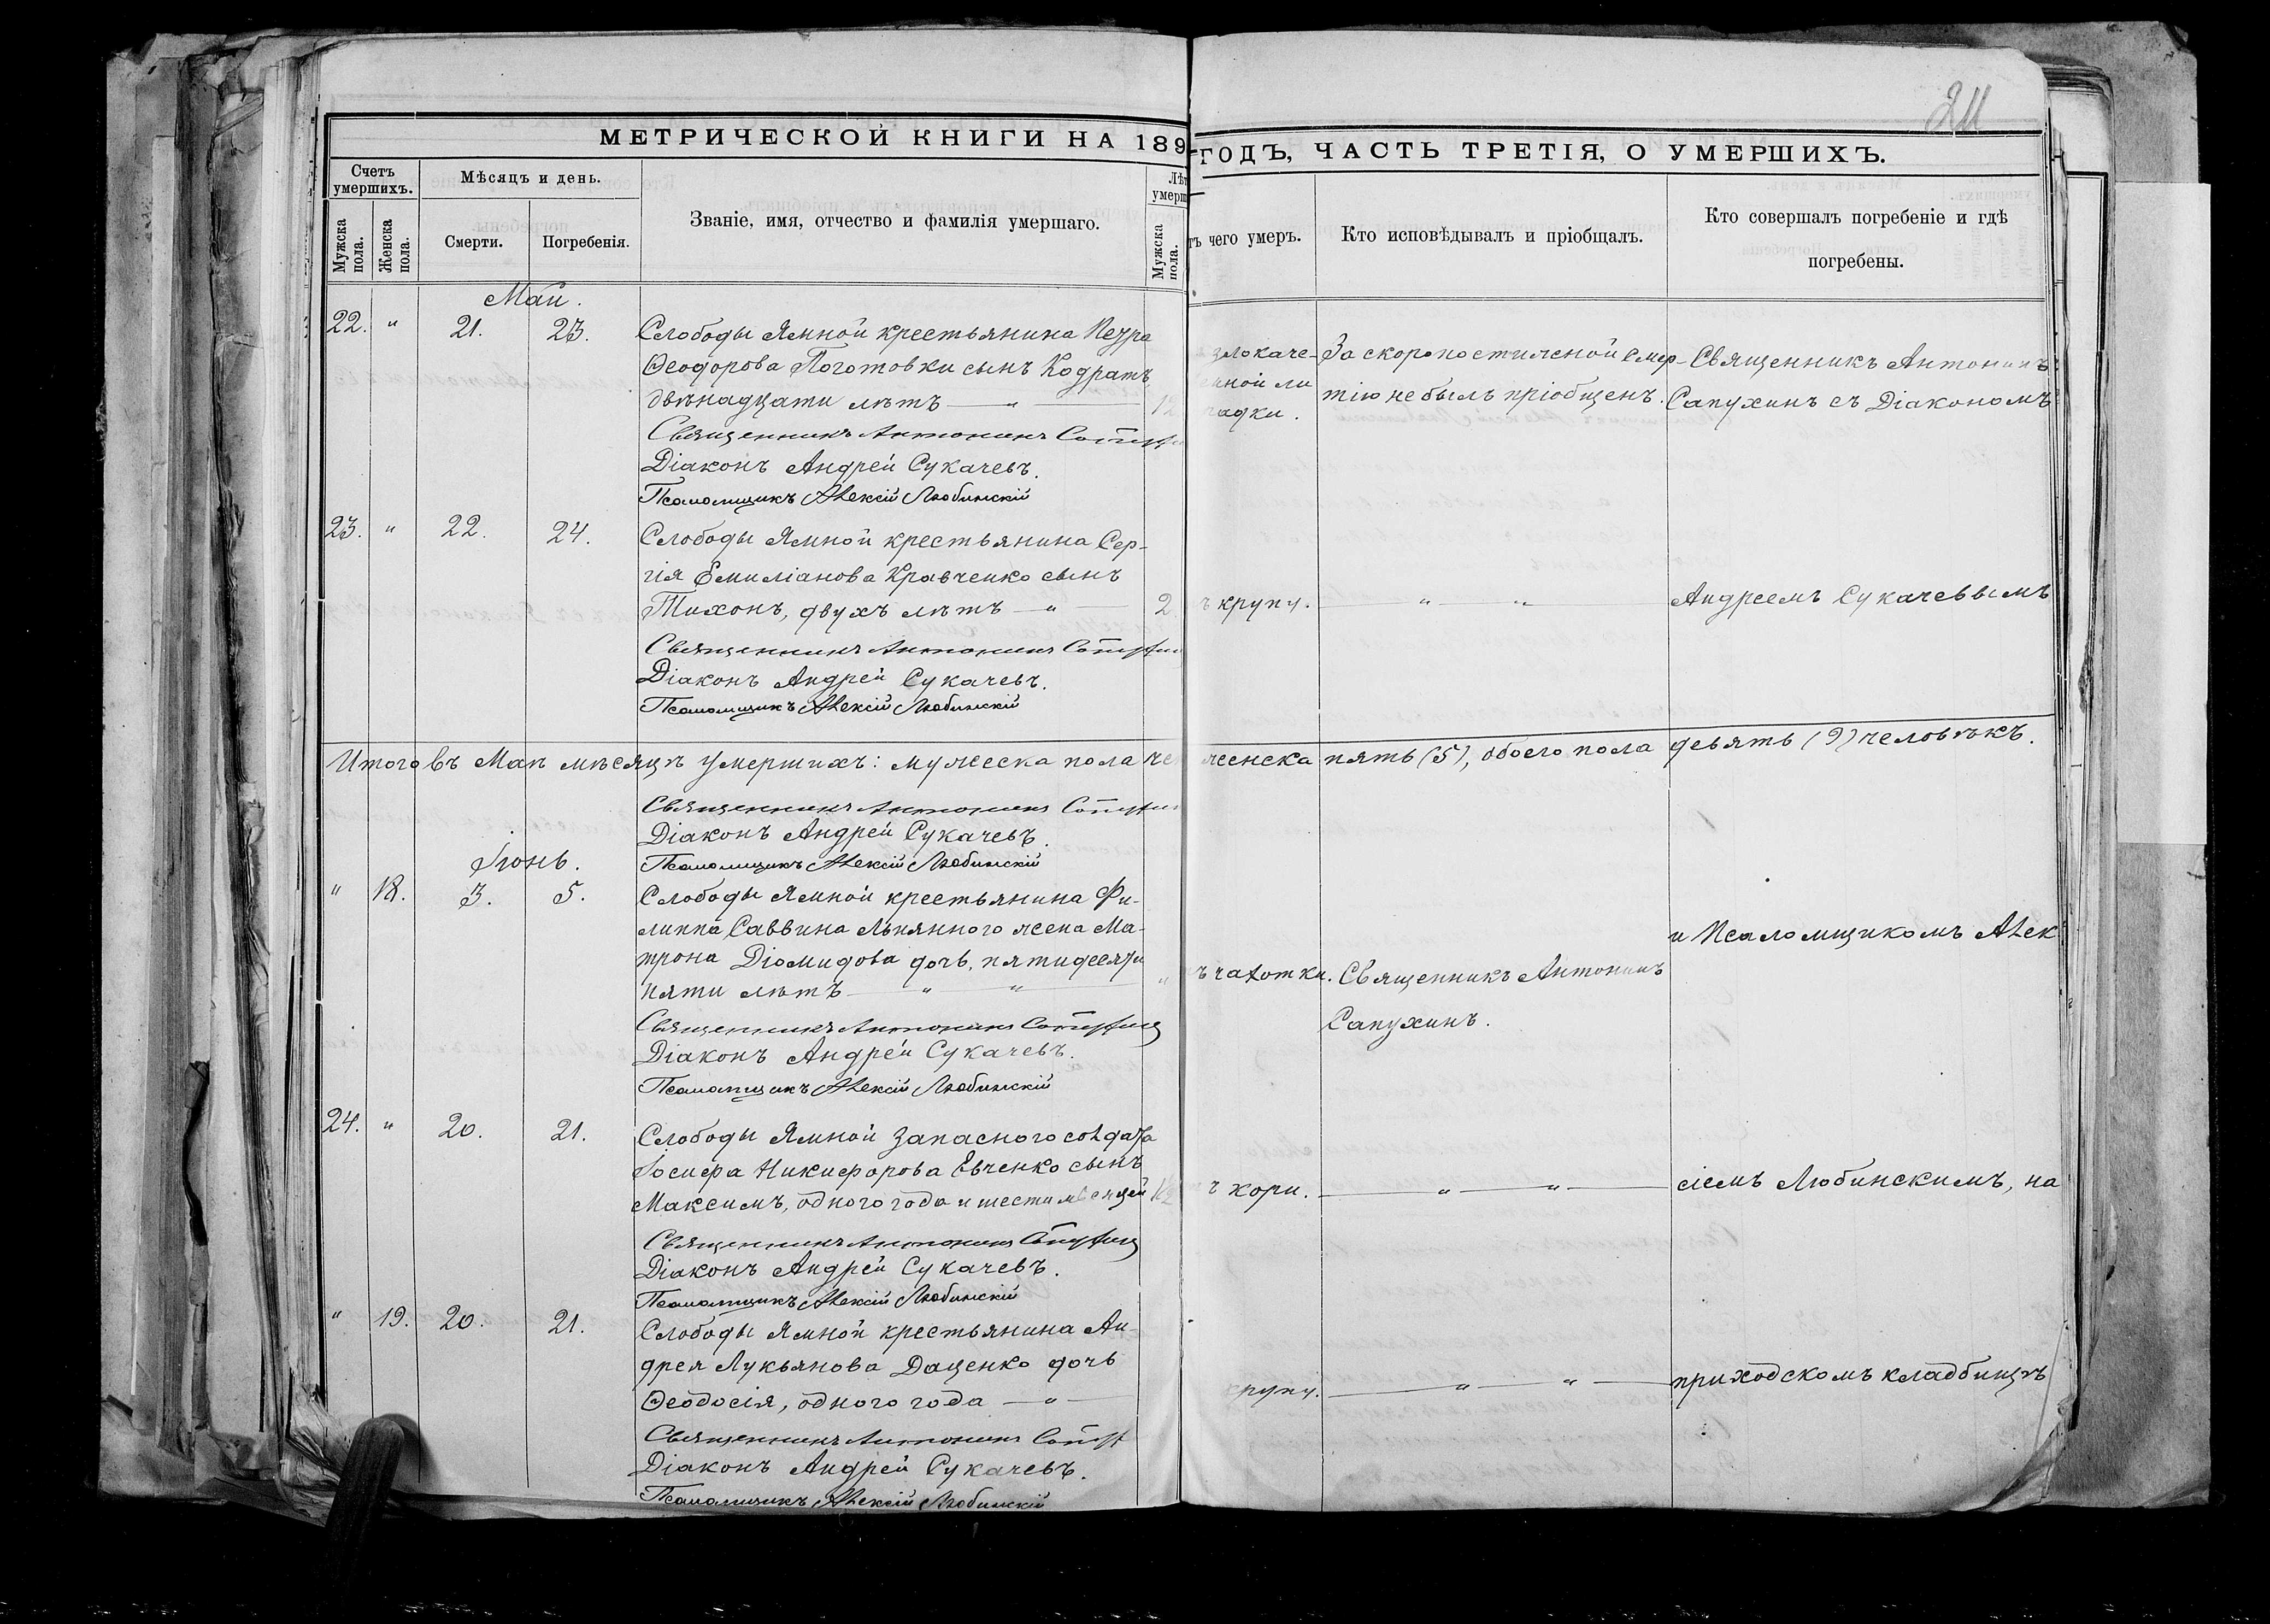 211
МЕТРИЧЕСКОЙ КНИГИ НА 189
ГОДЪ, ЧАСТЬ ТРЕТІЯ, О УМЕРШИХЪ.
Счетъ умершихъ.
Мужска пола.
Женска пола.
Мѣсяцъ и день.
Смерти.
Погребенія.
Званіе, имя, отчество и фамилія умершаго.
Мужска пола.
чего умеръ.
Кто исповѣдывалъ и пріобщалъ.
Кто совершалъ погребеніе и гдѣ
погребены.
Май.
22. " 21. 23. Слободы Ямной крестьянина Петра
Ѳеодорова Поготовки сынъ Кодратъ,
двѣнадцати лѣтъ — " — 12
злокаче-
ной ли
радки.
За скоропостижной смер-
тію не былъ пріобщенъ.
Священникъ Антонинъ
Сапухинъ съ Діакономъ
Священникъ Антонинъ
Діаконъ Андрей Сукачевъ.
Псаломщикъ Алексій Любинскій
23. " 22. 24. Слободы Ямной крестьянина Сер-
гія Емиліанова Кравченко сынъ
Тихонъ, двухъ лѣтъ — " — 2
ъ крупу. — " — " —
Андреемъ Сукачевымъ
Священникъ Антонинъ
Діаконъ Андрей Сукачевъ.
Псаломщикъ Алексій Любинскій
Итого въ Маѣ мѣсяцѣ умершихъ: мужеска пола
женска пять (5), обоего пола девять (9) человѣкъ.
Священникъ Антонинъ
Діаконъ Андрей Сукачевъ.
Псаломщикъ Алексій Любинскій
Іюнь.
" 18. 3. 5. Слободы Ямной крестьянина Фи-
липпа Саввина Льнянного жена Ма-
трона Діомидова дочь, пятидесяти
пяти лѣтъ — " — " — "
ъ чахотки.
Священникъ Антонинъ
Сапухинъ.
и Псаломщикомъ Алек
Священникъ Антонинъ Сапухинъ
Діаконъ Андрей Сукачевъ.
Псаломщикъ Алексій Любинскій
24. " 20. 21. Слободы Ямной запасного солдата
Іосифа Никифорова Евченко сынъ
Максимъ, одного года и шести мѣсяцей 1½
ъ кори. — " — " —
сіемъ Любинскимъ, на
Священникъ Антонинъ Сапухинъ
Діаконъ Андрей Сукачевъ.
Псаломщикъ Алексій Любинскій
" 19. 20. 21. Слободы Ямной крестьянина Ан-
дрея Лукьянова Даценко дочь
Ѳеодосія, одного года — " —
крупу. — " — " —
приходскомъ кладбищѣ
Священникъ Антонинъ
Діаконъ Андрей Сукачевъ.
Псаломщикъ Алексій Любинскій